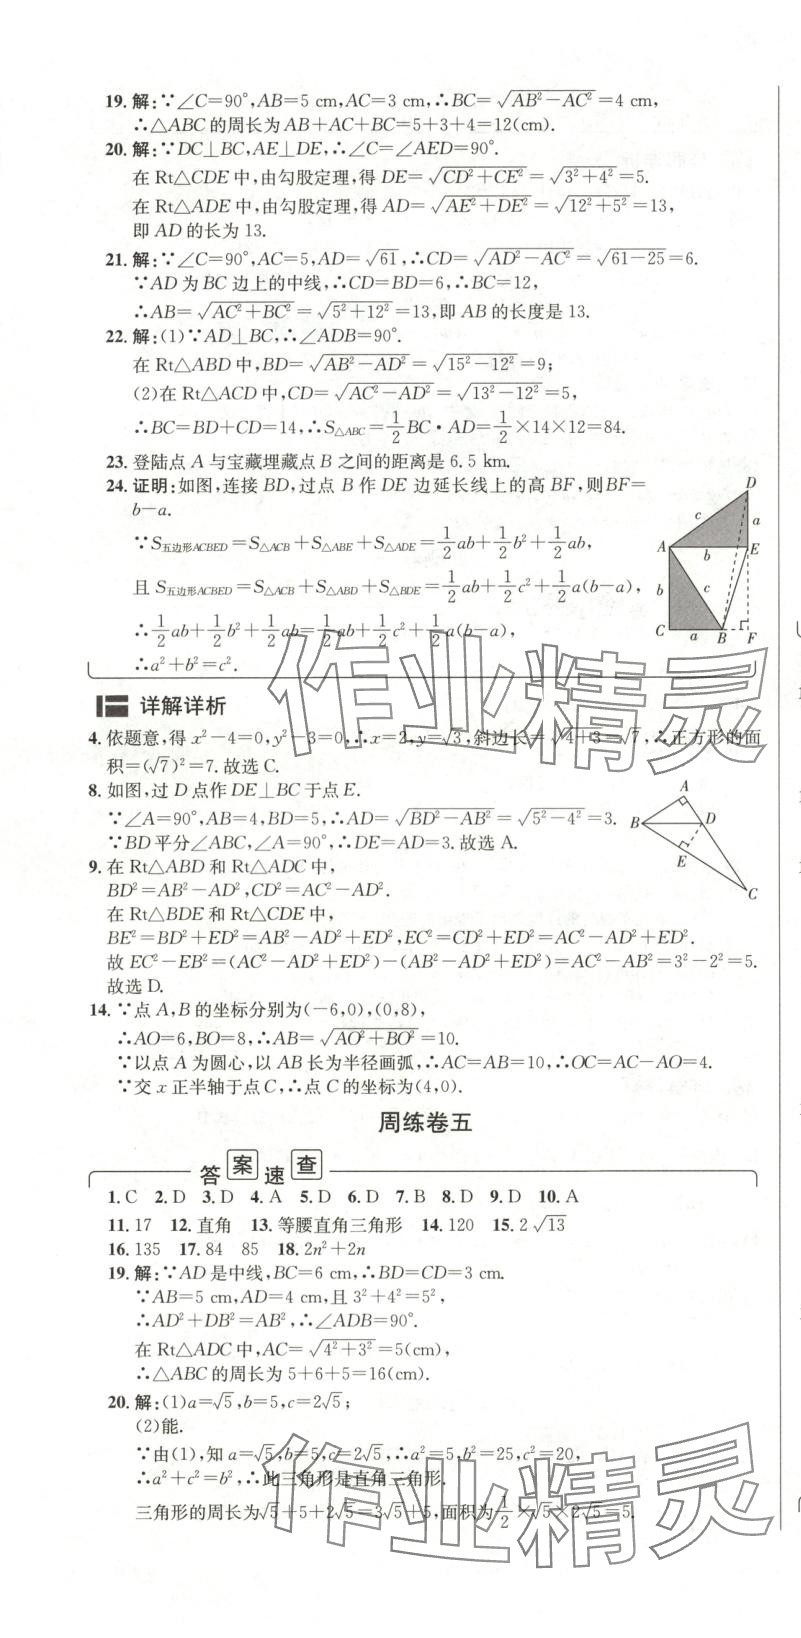 19. 解:∵∠C=90°,AB=5 cm,AC=3 cm,∴BC=√(AB²-AC²)=4 cm,
∴△ABC 的周长为 AB+AC+BC=5+3+4=12(cm).
20. 解:∵DC⊥BC,AE⊥DE,∴∠C=∠AED=90°.
在 Rt△CDE 中,由勾股定理,得 DE=√(CD²+CE²)=√(3²+4²)=5.
在 Rt△ADE 中,由勾股定理,得 AD=√(AE²+DE²)=√(12²+5²)=13,
即 AD 的长为 13.
21. 解:∵∠C=90°,AC=5,AD=√61,∴CD=√(AD²-AC²)=√(61-25)=6.
∵AD 为 BC 边上的中线,∴CD=BD=6,∴BC=12,
∴AB=√(AC²+BC²)=√(5²+12²)=13,即 AB 的长度是 13.
22. 解:(1)∵AD⊥BC,∴∠ADB=90°.
在 Rt△ABD 中,BD=√(AB²-AD²)=√(15²-12²)=9;
(2)在 Rt△ACD 中,CD=√(AC²-AD²)=√(13²-12²)=5,
∴BC=BD+CD=14,∴S△ABC=1/2 BC·AD=1/2×14×12=84.
23. 登陆点 A 与宝藏埋藏点 B 之间的距离是 6.5 km.
24. 证明:如图,连接 BD,过点 B 作 DE 边延长线上的高 BF,则BF=
b-a.
∵S五边形ACBED=S△ACB+S△ABE+S△ADE=1/2 ab+1/2 b²+1/2 ab,
且 S五边形ACBED=S△ACB+S△ABD+S△BDE=1/2 ab+1/2 c²+1/2 a(b-a),
∴1/2 ab+1/2 b²+1/2 ab=1/2 ab+1/2 c²+1/2 a(b-a),
∴a²+b²=c².
D
c
a
A
b
E
b
c
C
a
B
F
详解详析
4. 依题意,得 x²-4=0,y²-3=0,∴x=2,y=√3,斜边长=√(4+3)=√7,∴正方形的面
积=(√7)²=7.故选C.
8. 如图,过 D 点作 DE⊥BC 于点 E.
∵∠A=90°,AB=4,BD=5,∴AD=√(BD²-AB²)=√(5²-4²)=3.
∵BD平分∠ABC,∠A=90°,∴DE=AD=3.故选 A.
A
B
D
E
C
9. 在 Rt△ABD 和 Rt△ADC 中,
BD²=AB²-AD²,CD²=AC²-AD².
在 Rt△BDE 和 Rt△CDE 中,
BE²=BD²+ED²=AB²-AD²+ED²,EC²=CD²+ED²=AC²-AD²+ED².
故 EC²-EB²=(AC²-AD²+ED²)-(AB²-AD²+ED²)=AC²-AB²=3²-2²=5.
故选 D.
14. ∵点 A,B 的坐标分别为(-6,0),(0,8),
∴AO=6,BO=8,∴AB=√(AO²+BO²)=10.
∵以点 A 为圆心,以 AB 长为半径画弧,∴AC=AB=10,∴OC=AC-AO=4.
∵交 x 正半轴于点 C,∴点 C 的坐标为(4,0).
周练卷五
答案速查
1. C 2. D 3. D 4. A 5. D 6. D 7. B 8. D 9. D 10. A
11. 17 12. 直角 13. 等腰直角三角形 14. 120 15. 2√13
16. 135 17. 84 85 18. 2n²+2n
19. 解:∵AD 是中线,BC=6 cm,∴BD=CD=3 cm.
∵AB=5 cm,AD=4 cm,且 3²+4²=5²,
∴AD²+DB²=AB²,∴∠ADB=90°.
在 Rt△ADC 中,AC=√(4²+3²)=5(cm),
∴△ABC 的周长为 5+6+5=16(cm).
20. 解:(1)a=√5,b=5,c=2√5;
(2)能.
∵由(1),知 a=√5,b=5,c=2√5,∴a²=5,b²=25,c²=20,
∴a²+c²=b²,∴此三角形是直角三角形.
三角形的周长为√5+5+2√5=3√5+5,面积为1/2×√5×2√5=5.
作业精灵
作业精灵